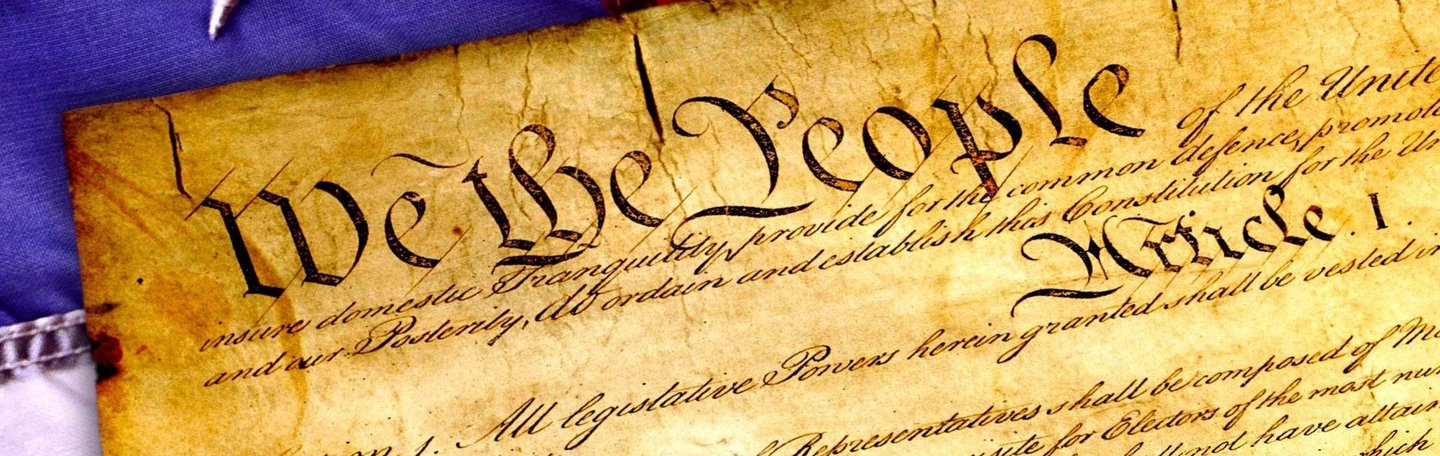 We the People of the Unite
insure domestic Tranquility, provide for the common defence, promote
and our Posterity, do ordain and establish this Constitution for the Un
Article. I.
1. All legislative Powers herein granted shall be vested in
Representatives shall be composed of Me
site for Electors of the most num
shall not have attain
which